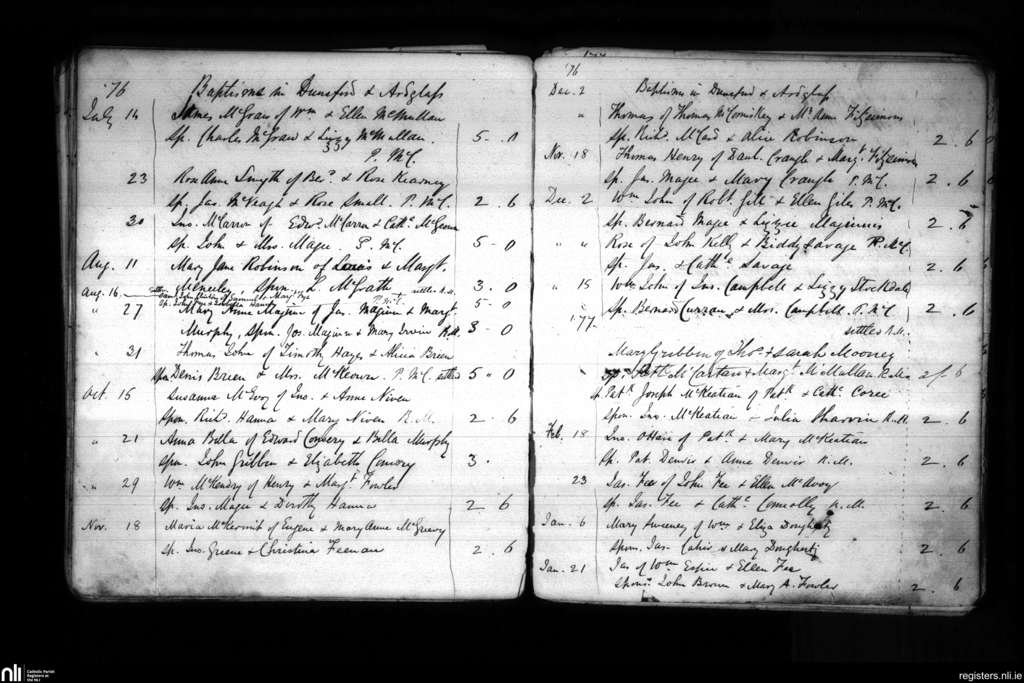 '76 Baptisms in Dunsford & Ardglass
July 16 James McGraw of Wm & Ellen McMullan
Sp. Charles McGraw & Lizzy McMullan 5 - 0
P. McC.
23 Rose Anne Smyth of & Rose Kearney
Sp. Jas. McVeagh & Rose Small. P. McC. 2 . 6
30 Jno. McCarron of Edwd. McCarron & Cathe.
Sp. John & Mrs. Magee. P. McC. 5 - 0
Aug. 11 Mary Jane Robinson of Louis & Margt.
McNeeley, Spon. L. McGrath 3 . 0
Aug. 16. 5 - 0
" 27 Mary Anne Maginn of Jas. Maginn & Margt.
Murphy, Spon. Jos. Maginn & Mary Irwin R.M. 3 - 0
" 31 Thomas John of Timothy Hayes & Alicia Brien
Spon Denis Brien & Mrs. McKeown. P. McC. settled 5 - 0
Oct. 15 Susanna McEvoy of Jno. & Anne Niven
Spon. Richd. Hanna & Mary Niven R.M. 2 - 6
" 21 Anna Bella of Edward Convery & Bella Murphy
Spon. John Gribben & Elizabeth Convery 3 .
" 29 Wm McKendry of Henry & Margt. Fowler
Sp. Jno. Magee & Dorothy Hanna 2 6
Nov. 18 Maria McKermit of Eugene & Mary Anne McGreevy
Sp. Jno. Greene & Christina Feenan 2 . 6
'76
Dec. 2 Baptisms in Dunsford & Ardglass
" Thomas of Thomas McComiskey & Anne Fitzsimons
Sp. Richd. McCard & Alice Robinson 2 . 6
Nov. 18 Thomas Henry of Danl. Crangle & Margt. Fitzsimons
Sp. Jas. Magee & Mary Crangle. P. McC. 2 . 6
Dec. 2 Wm John of Robt. Gill & Ellen Giles P. McC.
Sp. Bernard Magee & Lizzie Maginnis 2 . 6
" " Rose of John Kelly & Biddy Savage P. McC.
Sp. Jas. & Cathe. Savage 2 . 6
" 15 Wm John of Jno. Campbell & Lizzy Stockdale
Sp. Bernard Curran, & Mrs. Campbell. P. McC 2 . 6
'77. settled R.M.
Mary Gribben of Thos. & Sarah Mooney
McCartan & Margt. McMullan R.M. 2/- 6
Patk. Joseph McKeatian of Patk & Cathe.
Spon. Jno. McKeatian - Julia R.M. 2 . 6
Feb. 18 Jno. O'Hair of Patk & Mary McKeatian
Sp. Pat. Denvir & Anne Denvir R.M. 2 . 6
23 Jas. Fee of John Fee & Ellen McAvoy
Sp. Jas. Fee & Cathe. Connolly R.M. 2 . 6
Jan. 6 Mary Sweeney of Wm & Eliza Dougherty
Spon. Jas. & Mary Dougherty 2 . 6
Jan. 21 Jas of Wm & Ellen Fee
Spons. John Brown & Mary A. Fowler 2 . 6
nli Catholic Parish Registers at the NLI
registers.nli.ie